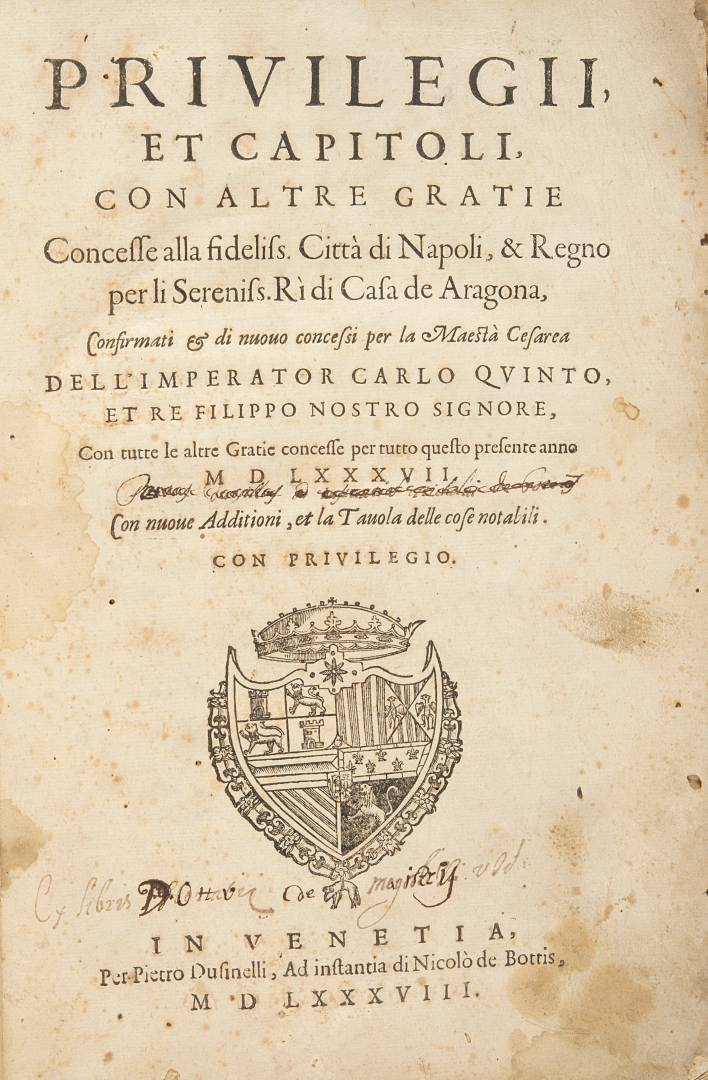 PRIVILEGII,
ET CAPITOLI,
CON ALTRE GRATIE
Conceſſe alla fideliſs. Città di Napoli, & Regno
per li Sereniſs. Rì di Caſa de Aragona,
Confirmati & di nuouo conceſsi per la Maeſtà Ceſarea
DELL'IMPERATOR CARLO QVINTO,
ET RE FILIPPO NOSTRO SIGNORE,
Con tutte le altre Gratie conceſſe per tutto queſto preſente anno
M D LXXXVII.
Con nuoue Additioni, et la Tauola delle coſe notabili.
CON PRIVILEGIO.
Ex libris de
IN VENETIA,
Per Pietro Duſinelli, Ad inſtantia di Nicolò de Bottis,
M D LXXXVIII.